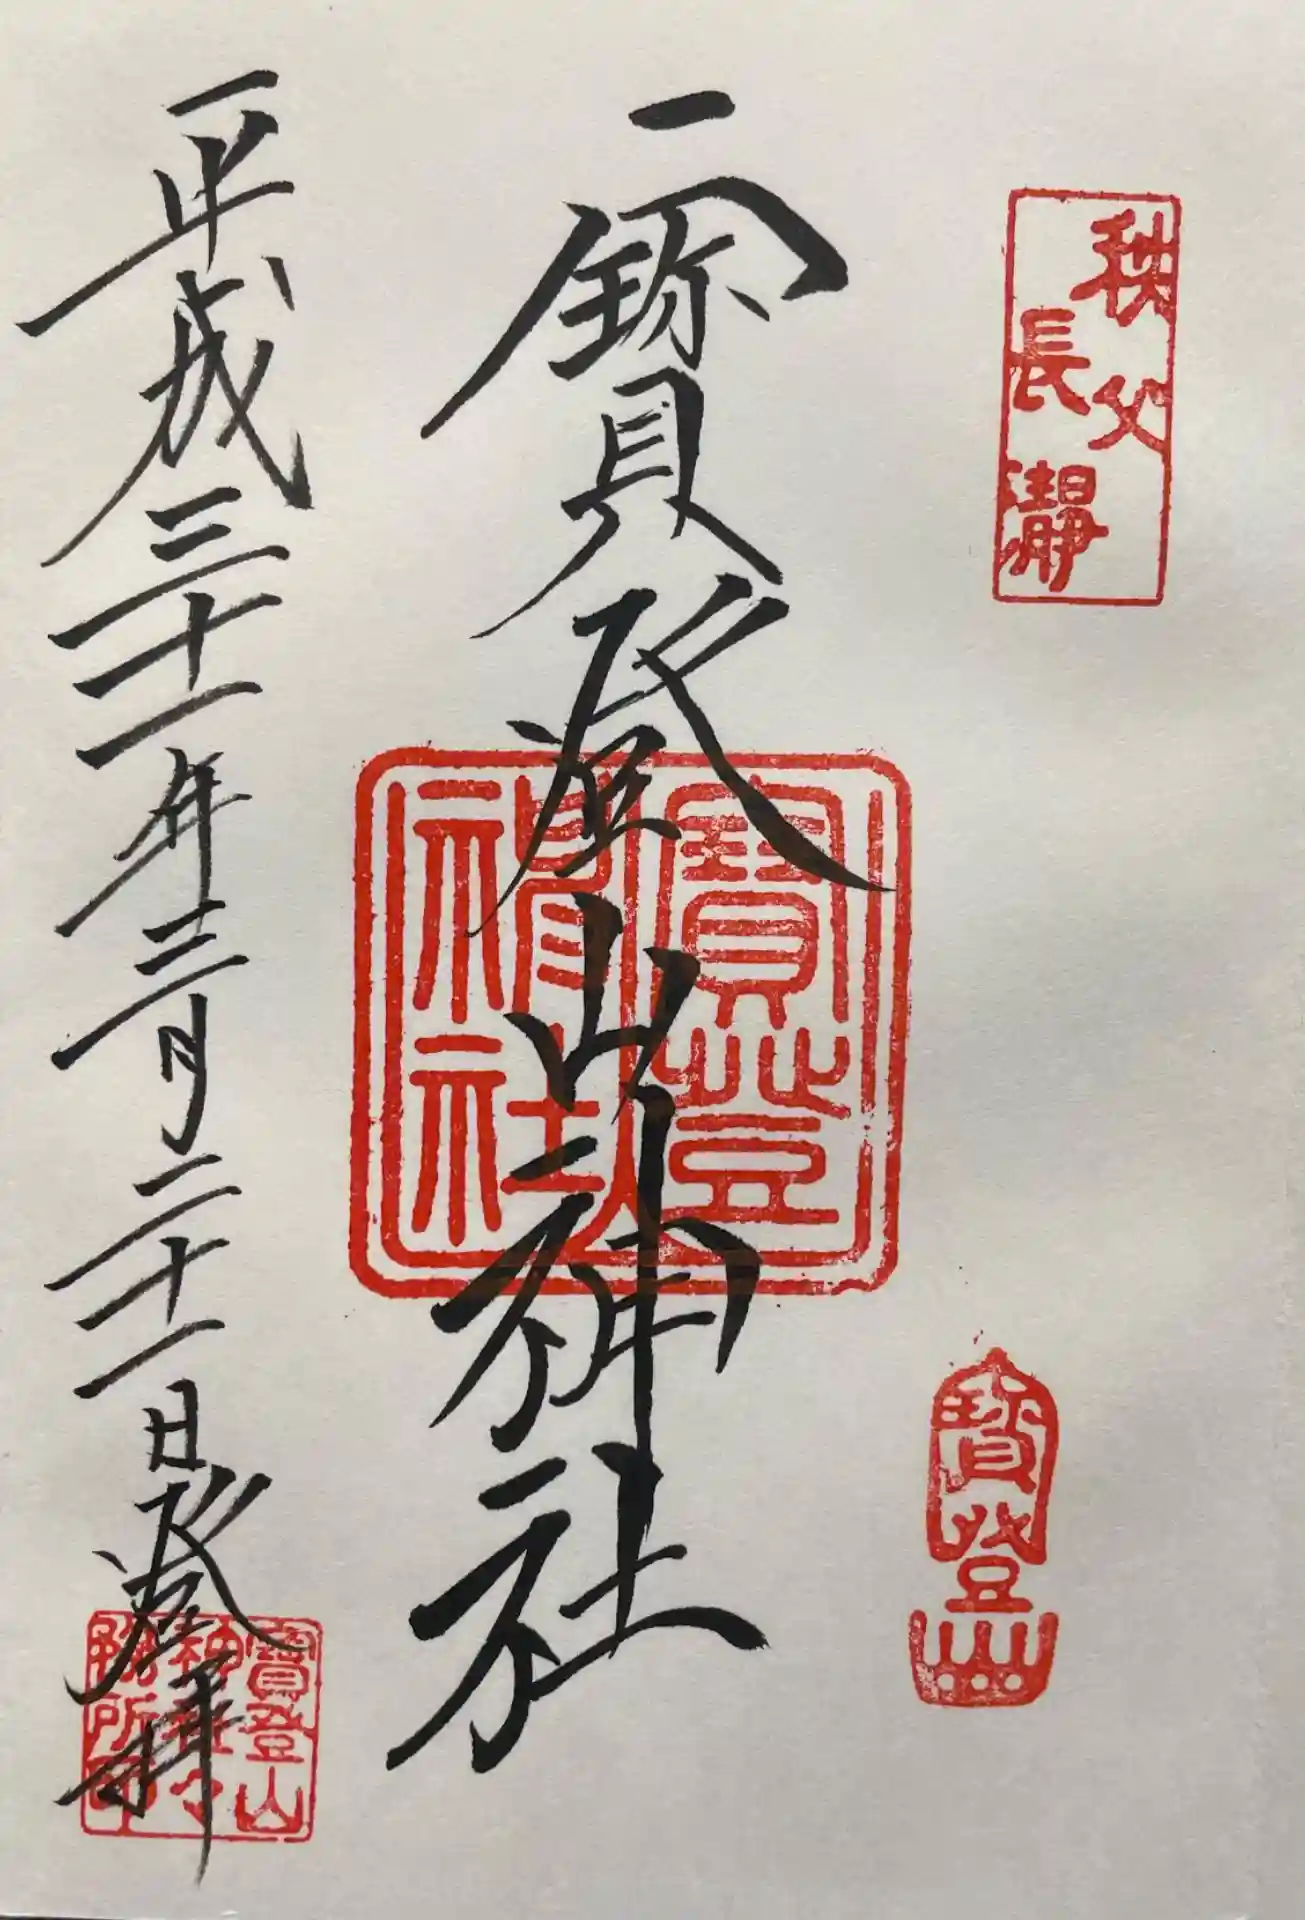 秩父
長瀞
寳登山
寳登山神社
寶登山神社
平成三十一年三月二十一日登拝
寶登山
神社々
務所印